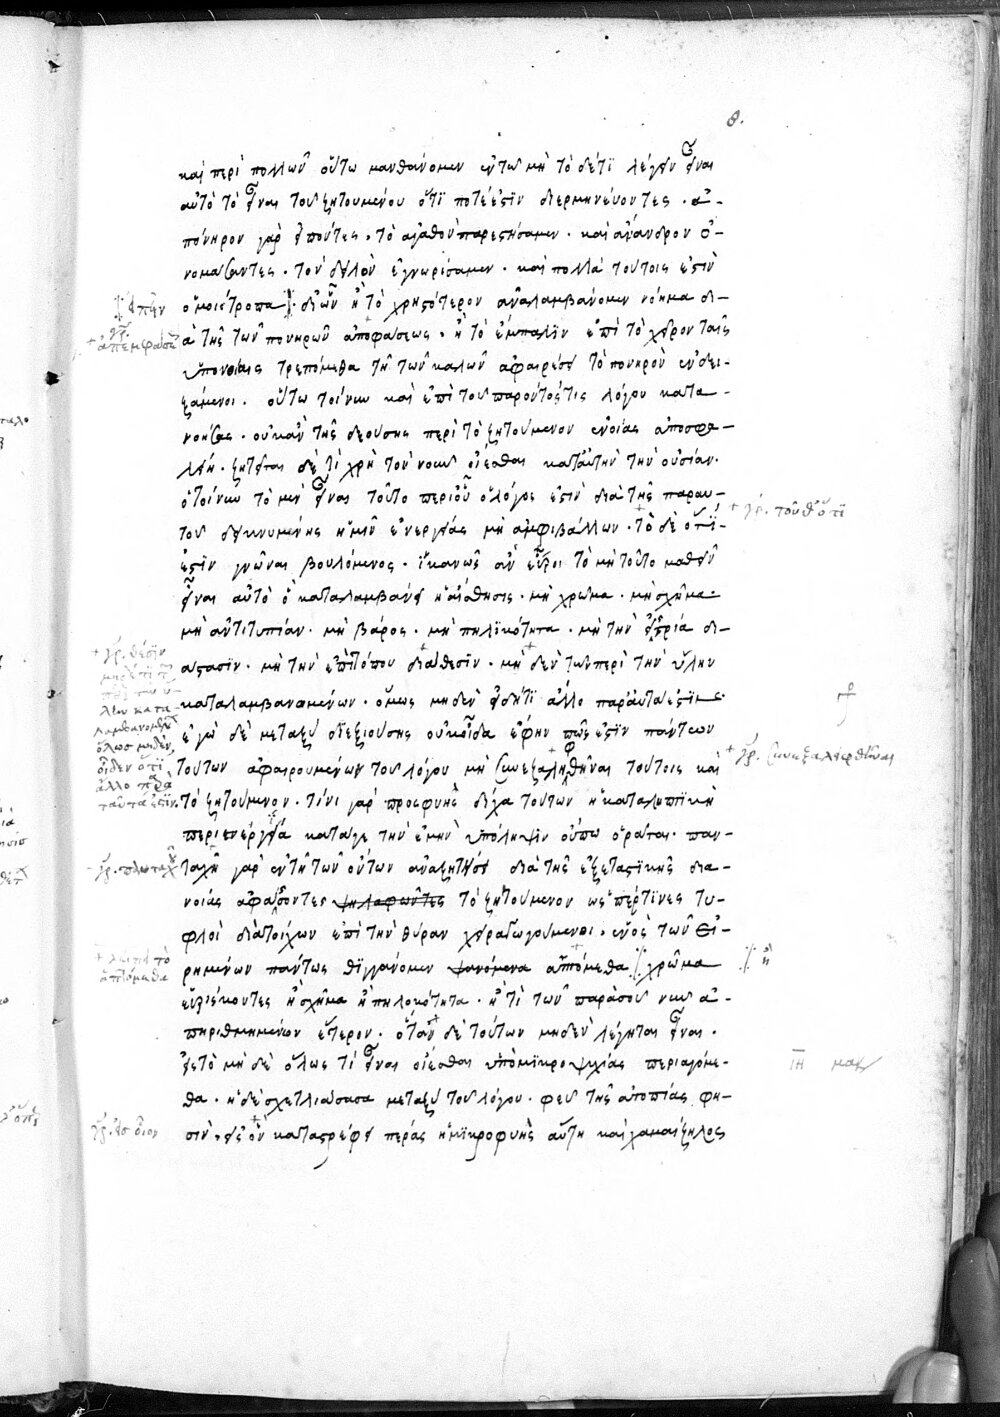 8.
καὶ περὶ πολλῶν οὕτω μανθάνομεν ἐν τῷ μὴ τὸ δέ τι λέγειν εἶναι
αὐτὸ τὸ εἶναι τοῦ ζητουμένου ὅτι ποτέ ἐστιν διερμηνεύοντες · ἀ-
πόνηρον γὰρ εἰπόντες, τὸ ἀγαθὸν παρεστήσαμεν · καὶ ἄνανδρον ὀ-
νομάσαντες · τὸν δειλὸν ἐγνωρίσαμεν · καὶ πολλὰ τούτοις ἐστὶν
ὁμοιότροπα · δι' ὧν ἢ τὸ χρηστότερον ἀναλαμβάνομεν νόημα δι-
ὰ τῆς τῶν πονηρῶν ἀποφάσεως · ἢ τὸ ἔμπαλιν ἐπὶ τὸ χεῖρον ταῖς
ὑπονοίαις τρεπόμεθα τῇ τῶν καλῶν ἀφαιρέσει τὸ πονηρὸν ἐνδει-
ξάμενοι · οὕτω τοίνυν καὶ ἐπὶ τοῦ παρόντός τις λόγου κατα-
νοήσας · οὐκ ἂν τῆς δεούσης περὶ τὸ ζητούμενον ἐννοίας ἀποσφα-
λείη · ζητεῖται δὲ τί χρὴ τὸν νοῦν οἴεσθαι κατ' αὐτὴν τὴν οὐσίαν ·
ὁ τοίνυν τὸ μὲν εἶναι τοῦτο περὶ οὗ ὁ λόγος ἐστὶν διὰ τῆς παρ' αυ-
τοῦ δεικνυμένης ἡμῖν ἐνεργείας μὴ ἀμφιβάλλων · τὸ δὲ ὅτι
ἐστὶν γνῶναι βουλόμενος · ἱκανῶς ἂν εὕροι τὸ μὴ τοῦτο μαθεῖν
εἶναι αὐτὸ ὃ καταλαμβάνει ἡ αἴσθησις · μὴ χρῶμα · μὴ σχῆμα
μὴ ἀντιτυπίαν · μὴ βάρος · μὴ πηλικότητα · μὴ τὴν εἰς τρία δι-
άστασιν · μὴ τὴν ἐπὶ τόπου διάθεσιν · μὴ δέν τι τῶν περὶ τὴν ὕλην
καταλαμβανομένων · ὅμως μηδὲν εἰ δή τι ἄλλο παρὰ ταῦτα ἐστιν
ἐγὼ δὲ μεταξὺ διεξιούσης οὐκ οἶδα ἔφην πῶς ἐστιν πάντων
τούτων ἀφαιρουμένων τοῦ λόγου μὴ συνεξαλειφθῆναι τούτοις καὶ
τὸ ζητούμενον · τίνι γὰρ προσφυῇ δίχα τούτων ἡ καταληπτικὴ
περιενέργεια κατά γε τὴν ἐμὴν ὑπόληψιν οὔπω ὁρᾶται · παν-
ταχῆ γὰρ ἐν τῇ τῶν ὄντων ἀναζητήσει διὰ τῆς ἐξεταστικῆς δια-
νοίας ἀφάσσοντες ψηλαφῶντες τὸ ζητούμενον ὥσπερ τινες τυ-
φλοὶ διὰ τοίχων ἐπὶ τὴν θύραν χειραγωγούμενοι, ἑνὸς τῶν εἰ-
ρημένων πάντως θιγγάνομεν ψανόμενα ἁπτόμεθα χρῶμα
εὑρίσκοντες ἢ σχῆμα ἢ πηλικότητα · ἤ τι τῶν παρὰ σοῦ νῦν ἀ-
πηριθμημένων ἕτερον · ὅταν δὲ τούτων μηδὲν λέγηται εἶναι ·
εἰς τὸ μὴ δὲ ὅλως τί εἶναι οἴεσθαι ὑπὸ μικροψυχίας περιαγόμε-
θα · ἡ δὲ σχετλιάσασα μεταξὺ τοῦ λόγου · φεῦ τῆς ἀτοπίας φη-
σὶν, εἰς ὃν καταστρέφει πέρας ἡ μικροφυὴς αὕτη καὶ χαμαίζηλος
εἰπεῖν
γρ.
ἀπεμφάσεως
γρ. τοῦθ' ὅτι
γρ. θέσιν
λέων κατα-
λαμβανομένων
ὅλως μηδέν,
οἶδεν ὅτι
ἄλλο παρὰ
ταῦτά ἐστιν.
γρ. συνεξαλειφθῆναι
γρ. πλὴν ταχ
λείπει τὸ
ἁπτόμεθα
ἢ
γρ. εἰς οἷον